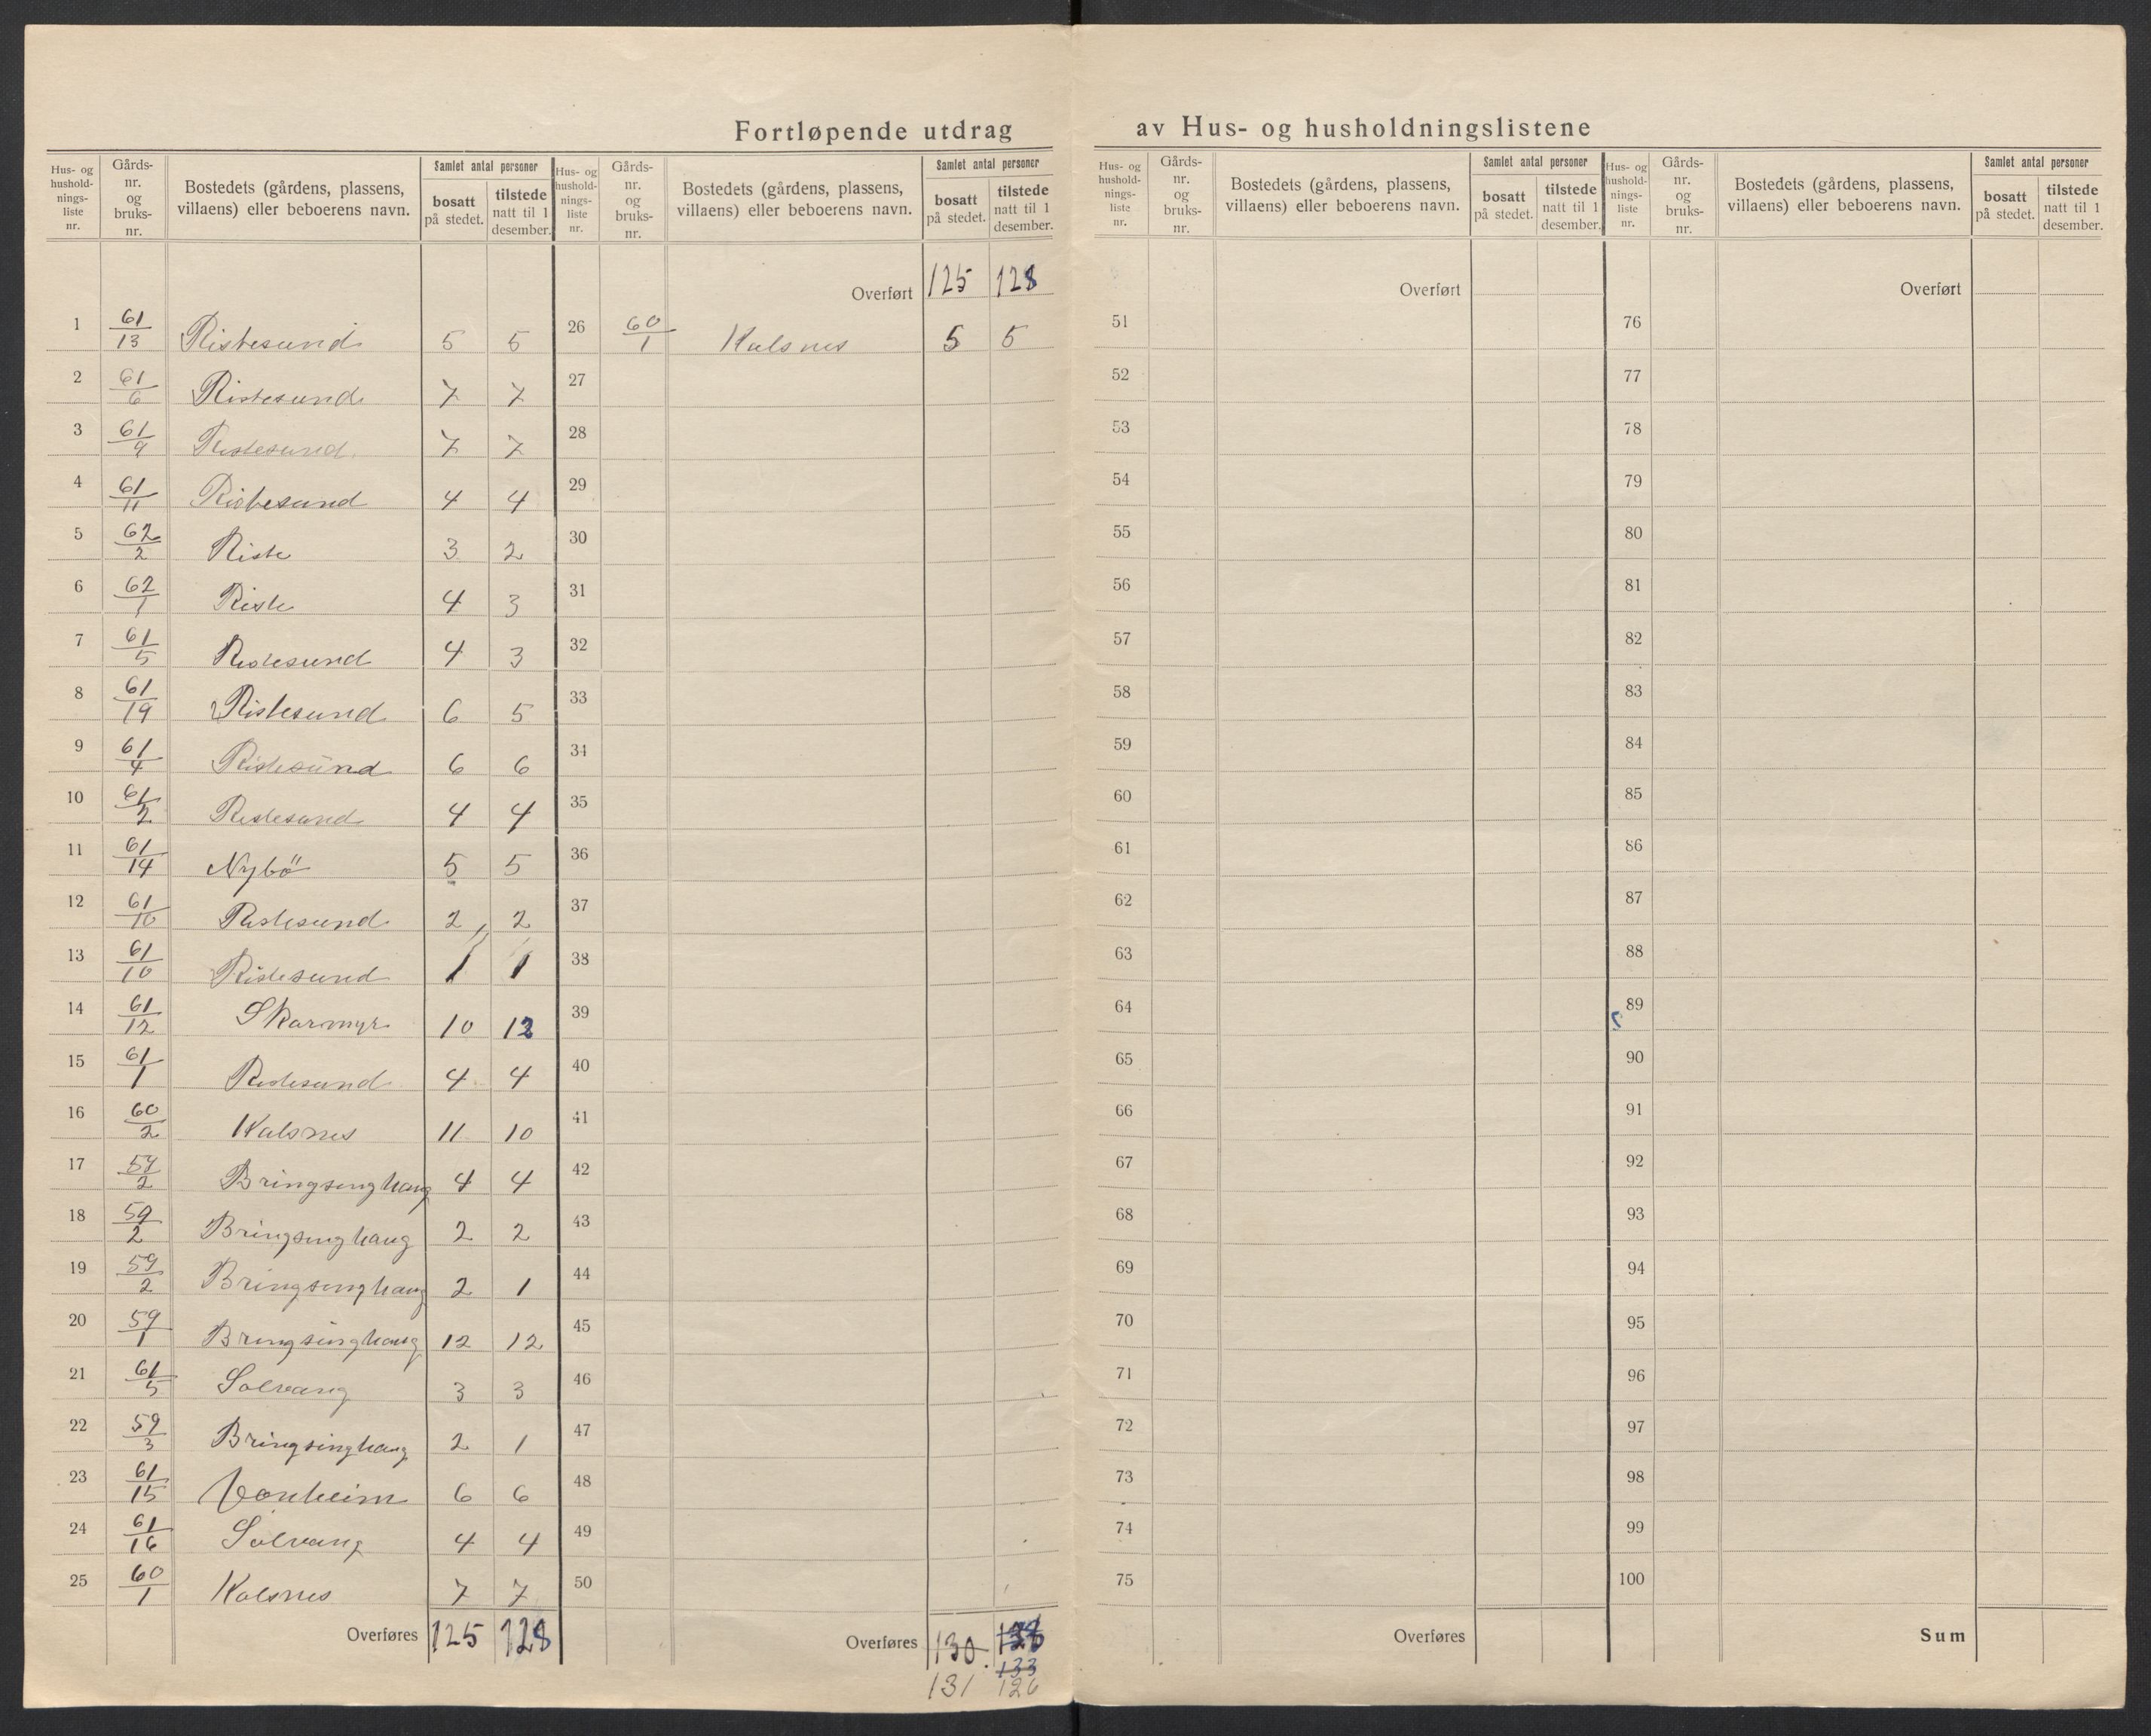 Fortløpende utdrag av Hus- og husholdningslistene
Hus- og hushold-nings-liste nr. Gårds-nr. og bruks-nr. Bostedets (gårdens, plassens, villaens) eller beboerens navn. Samlet antal personer bosatt på stedet. tilstede natt til 1 desember.
1 61/13 Ristesund 5 5
2 61/6 Ristesund 7 7
3 61/9 Ristesund 7 7
4 61/11 Ristesund 4 4
5 62/2 Riste 3 2
6 62/1 Riste 4 3
7 61/5 Ristesund 4 3
8 61/19 Ristesund 6 5
9 61/4 Ristesund 6 6
10 61/2 Ristesund 4 4
11 61/14 Nybö 5 5
12 61/10 Ristesund 2 2
13 61/10 Ristesund 1 1
14 61/12 Skarmyr 10 12
15 61/1 Ristesund 4 4
16 60/2 Kalsnes 11 10
17 59/2 Bringsinghaug 4 4
18 59/2 Bringsinghaug 2 2
19 59/2 Bringsinghaug 2 1
20 59/1 Bringsinghaug 12 12
21 61/5 Solvang 3 3
22 59/3 Bringsinghaug 2 1
23 61/15 Vonheim 6 6
24 61/16 Solvang 4 4
25 60/1 Kalsnes 7 7
Overføres 125 128
Hus- og hushold-nings-liste nr. Gårds-nr. og bruks-nr. Bostedets (gårdens, plassens, villaens) eller beboerens navn. Samlet antal personer bosatt på stedet. tilstede natt til 1 desember.
Overført 125 128
26 60/1 Kalsnes 5 5
27
28
29
30
31
32
33
34
35
36
37
38
39
40
41
42
43
44
45
46
47
48
49
50
Overføres 130
133
131 126
Hus- og hushold-nings-liste nr. Gårds-nr. og bruks-nr. Bostedets (gårdens, plassens, villaens) eller beboerens navn. Samlet antal personer bosatt på stedet. tilstede natt til 1 desember.
Overført
51
52
53
54
55
56
57
58
59
60
61
62
63
64
65
66
67
68
69
70
71
72
73
74
75
Overføres
Hus- og hushold-nings-liste nr. Gårds-nr. og bruks-nr. Bostedets (gårdens, plassens, villaens) eller beboerens navn. Samlet antal personer bosatt på stedet. tilstede natt til 1 desember.
Overført
76
77
78
79
80
81
82
83
84
85
86
87
88
89
90
91
92
93
94
95
96
97
98
99
100
Sum